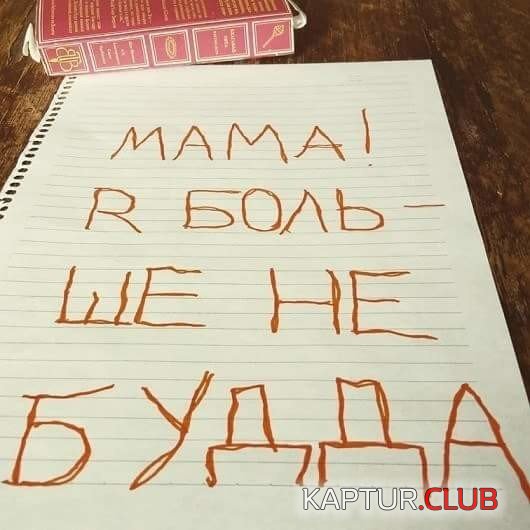 МАМА!
R БОЛЬ-
ШЕ НЕ
БУДДА
KAPTUR.CLUB